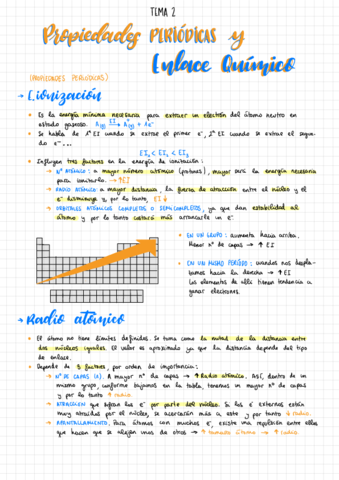 TEMA 2
Propiedades PERIÓDICAS y
Enlace Químico
(PROPIEDADES PERIÓDICAS)
→ Ionización
• Es la energía mínima necesaria para extraer un electrón del átomo neutro en
estado gaseoso.
• Se habla de 1ª EI cuando se extrae el primer e⁻, 2ª EI cuando se extrae el segun-
do e⁻...
EI₁ < EI₂ < EI₃
• Influyen tres factores en la energía de ionización:
→ Nº ATÓMICO: a mayor número atómico (protones), mayor será la energía necesaria
para ionizarlo. → ↑EI
→ RADIO ATÓMICO: a mayor distancia, la fuerza de atracción entre el núcleo y el
e⁻ disminuye y, por lo tanto, EI ↓
→ ORBITALES ATÓMICOS COMPLETOS O SEMICOMPLETOS, ya que dan estabilidad al
átomo y por lo tanto costará más arrancarle un e⁻.
• EN UN GRUPO: aumenta hacia arriba.
Menor nº de capas → ↑ EI
• EN UN MISMO PERÍODO: cuando nos despla-
zamos hacia la derecha → ↑ EI
Los elementos de allí tienen tendencia a
ganar electrones.
→ Radio atómico
• El átomo no tiene límites definidos. Se toma como la mitad de la distancia entre
dos núcleos iguales. El valor es aproximado ya que la distancia depende del tipo
de enlace.
• Depende de 3 factores, por orden de importancia:
→ Nº DE CAPAS (n). A mayor nº de capas → ↑ Radio atómico. Así, dentro de un
mismo grupo, conforme bajamos en la tabla, tenemos un mayor nº de capas
y por lo tanto ↑ radio.
→ ATRACCIÓN que sufren los e⁻ por parte del núcleo. Si los e⁻ externos están
muy atraídos por el núcleo, se acercarán más a este y por tanto ↓ radio.
→ APANTALLAMIENTO. Para átomos con muchos e⁻, existe una repulsión entre ellos
que hacen que se alejen unos de otros → ↑ tamaño átomo → ↑ radio.